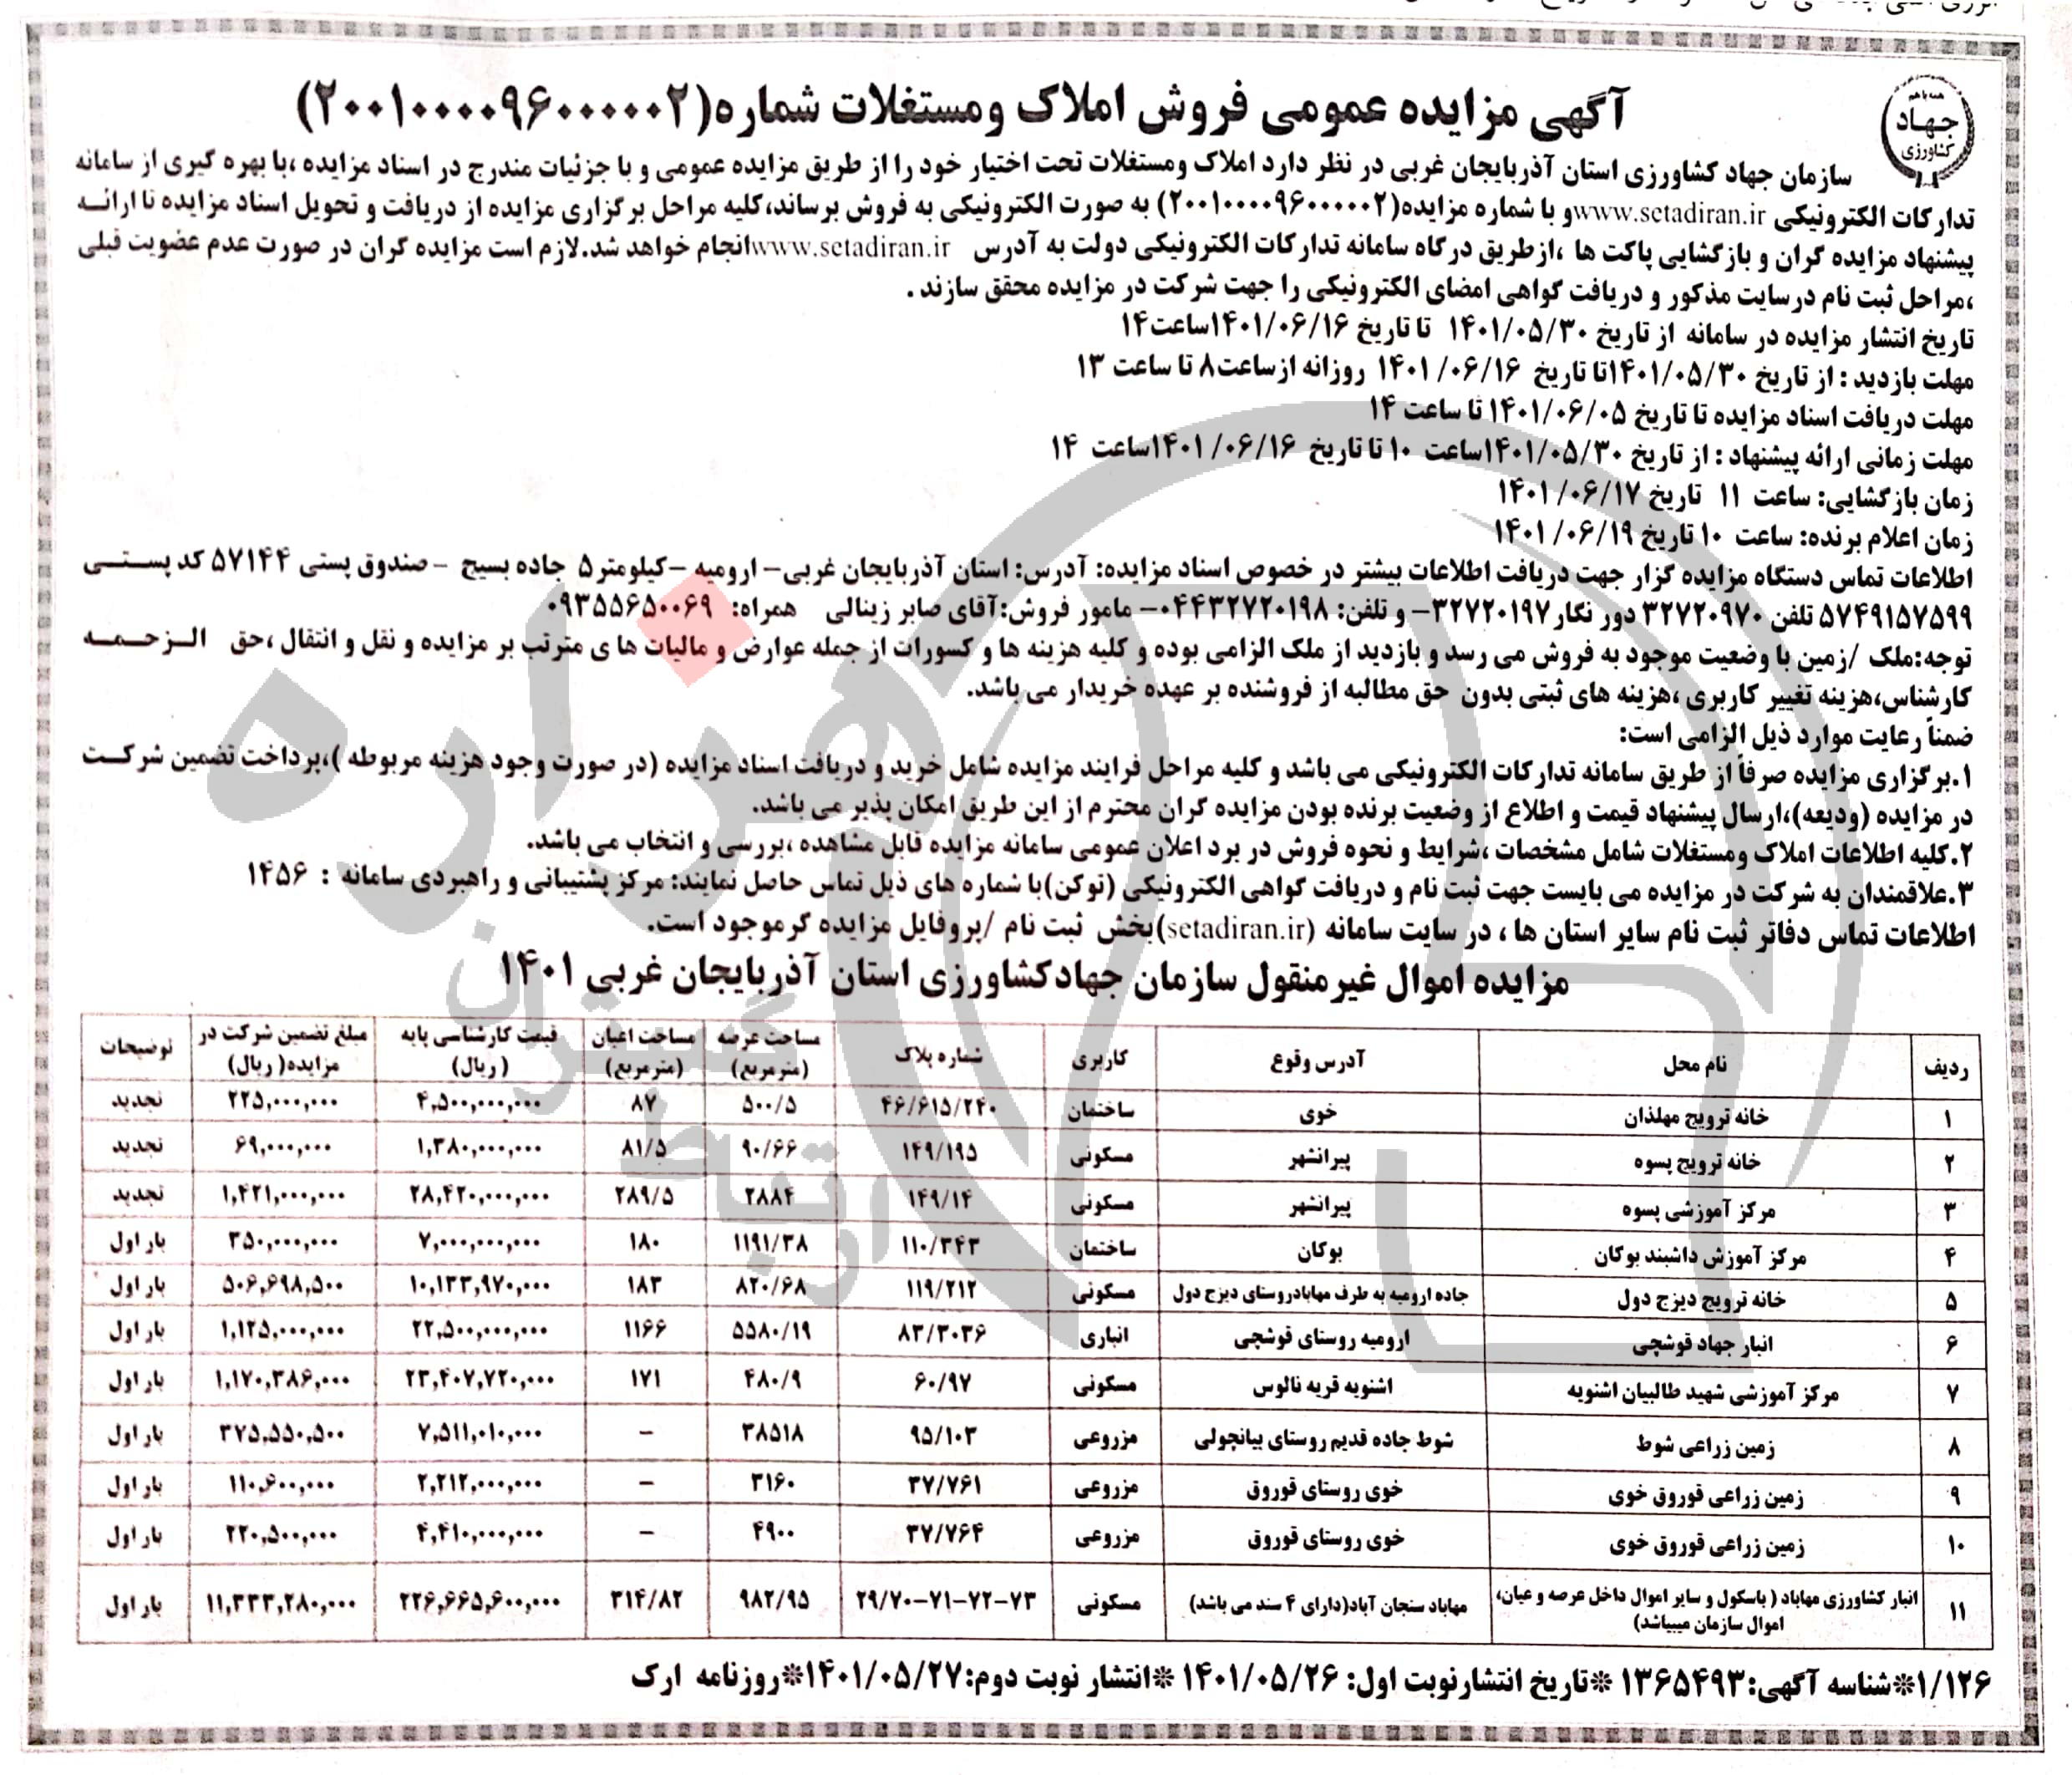 همه با هم
جهاد
کشاورزی
آگهی مزایده عمومی فروش املاک ومستغلات شماره(۲۰۰۱۰۰۰۰۹۶۰۰۰۰۰۲)
سازمان جهاد کشاورزی استان آذربایجان غربی در نظر دارد املاک ومستغلات تحت اختیار خود را از طریق مزایده عمومی و با جزئیات مندرج در اسناد مزایده ،با بهره گیری از سامانه
تدارکات الکترونیکی www.setadiran.irو با شماره مزایده(۲۰۰۱۰۰۰۰۹۶۰۰۰۰۰۲) به صورت الکترونیکی به فروش برساند،کلیه مراحل برگزاری مزایده از دریافت و تحویل اسناد مزایده تا ارائه
پیشنهاد مزایده گران و بازگشایی پاکت ها ،ازطریق درگاه سامانه تدارکات الکترونیکی دولت به آدرس www.setadiran.irانجام خواهد شد.لازم است مزایده گران در صورت عدم عضویت قبلی
،مراحل ثبت نام درسایت مذکور و دریافت گواهی امضای الکترونیکی را جهت شرکت در مزایده محقق سازند .
تاریخ انتشار مزایده در سامانه از تاریخ ۱۴۰۱/۰۵/۳۰ تا تاریخ ۱۴۰۱/۰۶/۱۶ساعت۱۴
مهلت بازدید : از تاریخ ۱۴۰۱/۰۵/۳۰تا تاریخ ۱۴۰۱/۰۶/۱۶ روزانه ازساعت۸ تا ساعت ۱۳
مهلت دریافت اسناد مزایده تا تاریخ ۱۴۰۱/۰۶/۰۵ تا ساعت ۱۴
مهلت زمانی ارائه پیشنهاد : از تاریخ ۱۴۰۱/۰۵/۳۰ساعت ۱۰ تا تاریخ ۱۴۰۱/۰۶/۱۶ساعت ۱۴
زمان بازگشایی: ساعت ۱۱ تاریخ ۱۴۰۱/۰۶/۱۷
زمان اعلام برنده: ساعت ۱۰ تاریخ ۱۴۰۱/۰۶/۱۹
اطلاعات تماس دستگاه مزایده گزار جهت دریافت اطلاعات بیشتر در خصوص اسناد مزایده: آدرس: استان آذربایجان غربی- ارومیه -کیلومتر۵ جاده بسیج -صندوق پستی ۵۷۱۴۴ کد پستی
۵۷۴۹۱۵۷۵۹۹ تلفن ۳۲۷۲۰۹۷۰ دور نگار ۳۲۷۲۰۱۹۷- و تلفن: ۰۴۴۳۲۷۲۰۱۹۸- مامور فروش:آقای صابر زینالی همراه: ۰۹۳۵۵۶۵۰۰۶۹
توجه:ملک /زمین با وضعیت موجود به فروش می رسد و بازدید از ملک الزامی بوده و کلیه هزینه ها و کسورات از جمله عوارض و مالیات ها ی مترتب بر مزایده و نقل و انتقال ،حق الزحمه
کارشناس،هزینه تغییر کاربری ،هزینه های ثبتی بدون حق مطالبه از فروشنده بر عهده خریدار می باشد.
ضمناً رعایت موارد ذیل الزامی است:
۱.برگزاری مزایده صرفاً از طریق سامانه تدارکات الکترونیکی می باشد و کلیه مراحل فرایند مزایده شامل خرید و دریافت اسناد مزایده (در صورت وجود هزینه مربوطه )،پرداخت تضمین شرکت
در مزایده (ودیعه)،ارسال پیشنهاد قیمت و اطلاع از وضعیت برنده بودن مزایده گران محترم از این طریق امکان پذیر می باشد.
۲.کلیه اطلاعات املاک ومستغلات شامل مشخصات ،شرایط و نحوه فروش در برد اعلان عمومی سامانه مزایده قابل مشاهده ،بررسی و انتخاب می باشد.
۳.علاقمندان به شرکت در مزایده می بایست جهت ثبت نام و دریافت گواهی الکترونیکی (توکن)با شماره های ذیل تماس حاصل نمایند: مرکز پشتیبانی و راهبردی سامانه : ۱۴۵۶
اطلاعات تماس دفاتر ثبت نام سایر استان ها ، در سایت سامانه (setadiran.ir)بخش ثبت نام /پروفایل مزایده گر موجود است.
مزایده اموال غیرمنقول سازمان جهادکشاورزی استان آذربایجان غربی ۱۴۰۱
ردیف نام محل آدرس وقوع کاربری شماره پلاک مساحت عرصه (مترمربع) مساحت اعیان (مترمربع) قیمت کارشناسی پایه (ریال) مبلغ تضمین شرکت در مزایده(ریال) توضیحات
۱ خانه ترویج مهلذان خوی ساختمان ۴۶/۶۱۵/۲۴۰ ۵۰۰/۵ ۸۷ ۴,۵۰۰,۰۰۰,۰۰۰ ۲۲۵,۰۰۰,۰۰۰ تجدید
۲ خانه ترویج پسوه پیرانشهر مسکونی ۱۴۹/۱۹۵ ۹۰/۶۶ ۸۱/۵ ۱,۳۸۰,۰۰۰,۰۰۰ ۶۹,۰۰۰,۰۰۰ تجدید
۳ مرکز آموزشی پسوه پیرانشهر مسکونی ۱۴۹/۱۴ ۲۸۸۴ ۲۸۹/۵ ۲۸,۴۲۰,۰۰۰,۰۰۰ ۱,۴۲۱,۰۰۰,۰۰۰ تجدید
۴ مرکز آموزش داشبند بوکان بوکان ساختمان ۱۱۰/۳۴۳ ۱۱۹۱/۳۸ ۱۸۰ ۷,۰۰۰,۰۰۰,۰۰۰ ۳۵۰,۰۰۰,۰۰۰ بار اول
۵ خانه ترویج دیزج دول جاده ارومیه به طرف مهابادروستای دیزج دول مسکونی ۱۱۹/۲۱۲ ۸۲۰/۶۸ ۱۸۳ ۱۰,۱۳۳,۹۷۰,۰۰۰ ۵۰۶,۶۹۸,۵۰۰ بار اول
۶ انبار جهاد قوشچی ارومیه روستای قوشچی انباری ۸۳/۳۰۳۶ ۵۵۸۰/۱۹ ۱۱۶۶ ۲۲,۵۰۰,۰۰۰,۰۰۰ ۱,۱۲۵,۰۰۰,۰۰۰ بار اول
۷ مرکز آموزشی شهید طالبیان اشنویه اشنویه قریه نالوس مسکونی ۶۰/۹۷ ۴۸۰/۹ ۱۷۱ ۲۳,۴۰۷,۷۲۰,۰۰۰ ۱,۱۷۰,۳۸۶,۰۰۰ بار اول
۸ زمین زراعی شوط شوط جاده قدیم روستای بیانچولی مزروعی ۹۵/۱۰۳ ۳۸۵۱۸ - ۷,۵۱۱,۰۱۰,۰۰۰ ۳۷۵,۵۵۰,۵۰۰ بار اول
۹ زمین زراعی قوروق خوی خوی روستای قوروق مزروعی ۳۷/۷۶۱ ۳۱۶۰ - ۲,۲۱۲,۰۰۰,۰۰۰ ۱۱۰,۶۰۰,۰۰۰ بار اول
۱۰ زمین زراعی قوروق خوی خوی روستای قوروق مزروعی ۳۷/۷۶۴ ۴۹۰۰ - ۴,۴۱۰,۰۰۰,۰۰۰ ۲۲۰,۵۰۰,۰۰۰ بار اول
۱۱ انبار کشاورزی مهاباد ( باسکول و سایر اموال داخل عرصه و عیان، اموال سازمان میباشد) مهاباد سنجان آباد(دارای ۴ سند می باشد) مسکونی ۲۹/۷۰-۷۱-۷۲-۷۳ ۹۸۲/۹۵ ۳۱۴/۸۲ ۲۲۶,۶۶۵,۶۰۰,۰۰۰ ۱۱,۳۳۳,۲۸۰,۰۰۰ بار اول
۱/۱۲۶*شناسه آگهی:۱۳۶۵۴۹۳ *تاریخ انتشارنوبت اول: ۱۴۰۱/۰۵/۲۶ *انتشار نوبت دوم:۱۴۰۱/۰۵/۲۷*روزنامه ارک
هزاره
گسترش
ارتباط